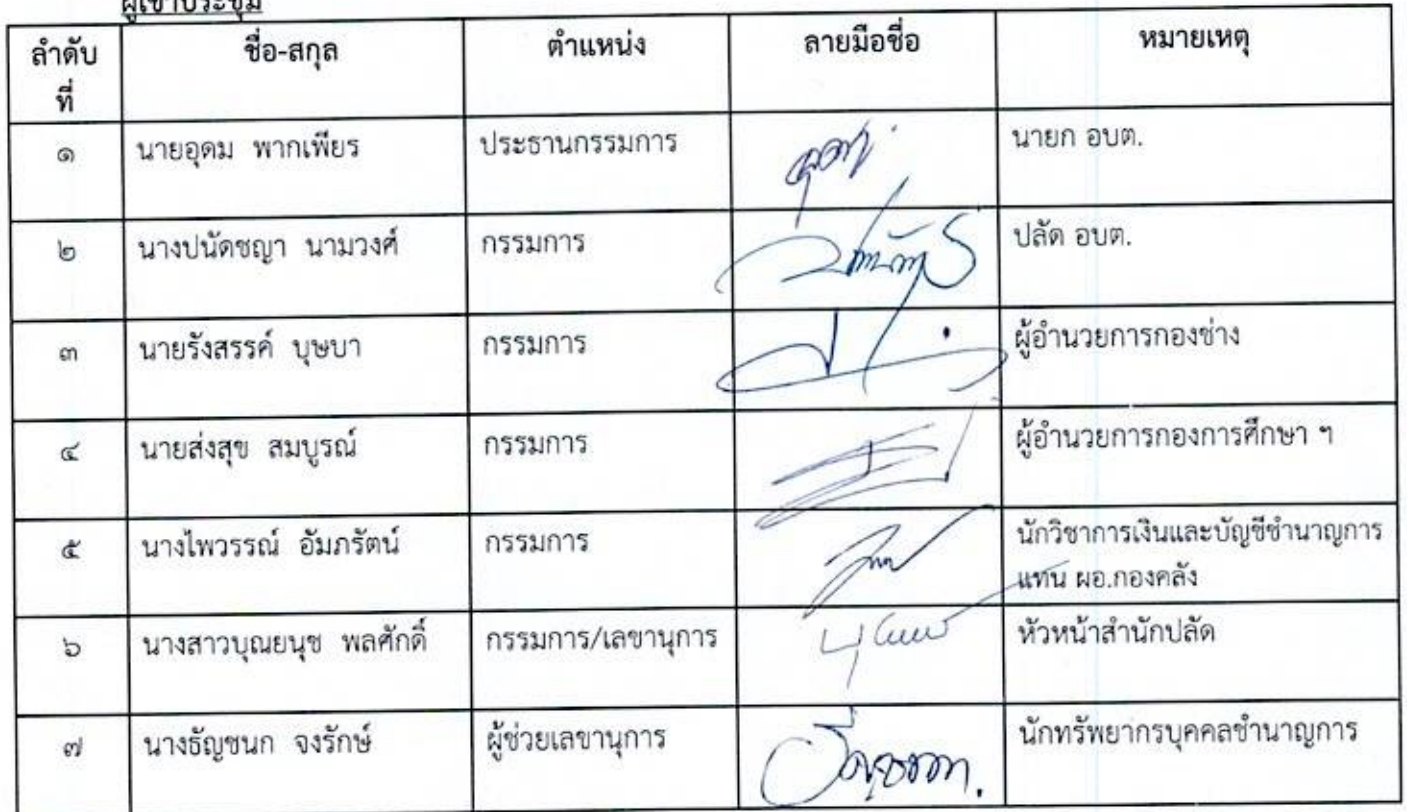 ผู้เข้าประชุม
ลำดับที่ ชื่อ-สกุล ตำแหน่ง ลายมือชื่อ หมายเหตุ
๑ นายอุดม พากเพียร ประธานกรรมการ นายก อบต.
๒ นางปนัดชญา นามวงศ์ กรรมการ ปลัด อบต.
๓ นายรังสรรค์ บุษบา กรรมการ ผู้อำนวยการกองช่าง
๔ นายส่งสุข สมบูรณ์ กรรมการ ผู้อำนวยการกองการศึกษา ฯ
๕ นางไพวรรณ์ อัมภรัตน์ กรรมการ นักวิชาการเงินและบัญชีชำนาญการ
แทน ผอ.กองคลัง
๖ นางสาวบุณยนุช พลศักดิ์ กรรมการ/เลขานุการ หัวหน้าสำนักปลัด
๗ นางธัญชนก จงรักษ์ ผู้ช่วยเลขานุการ นักทรัพยากรบุคคลชำนาญการ